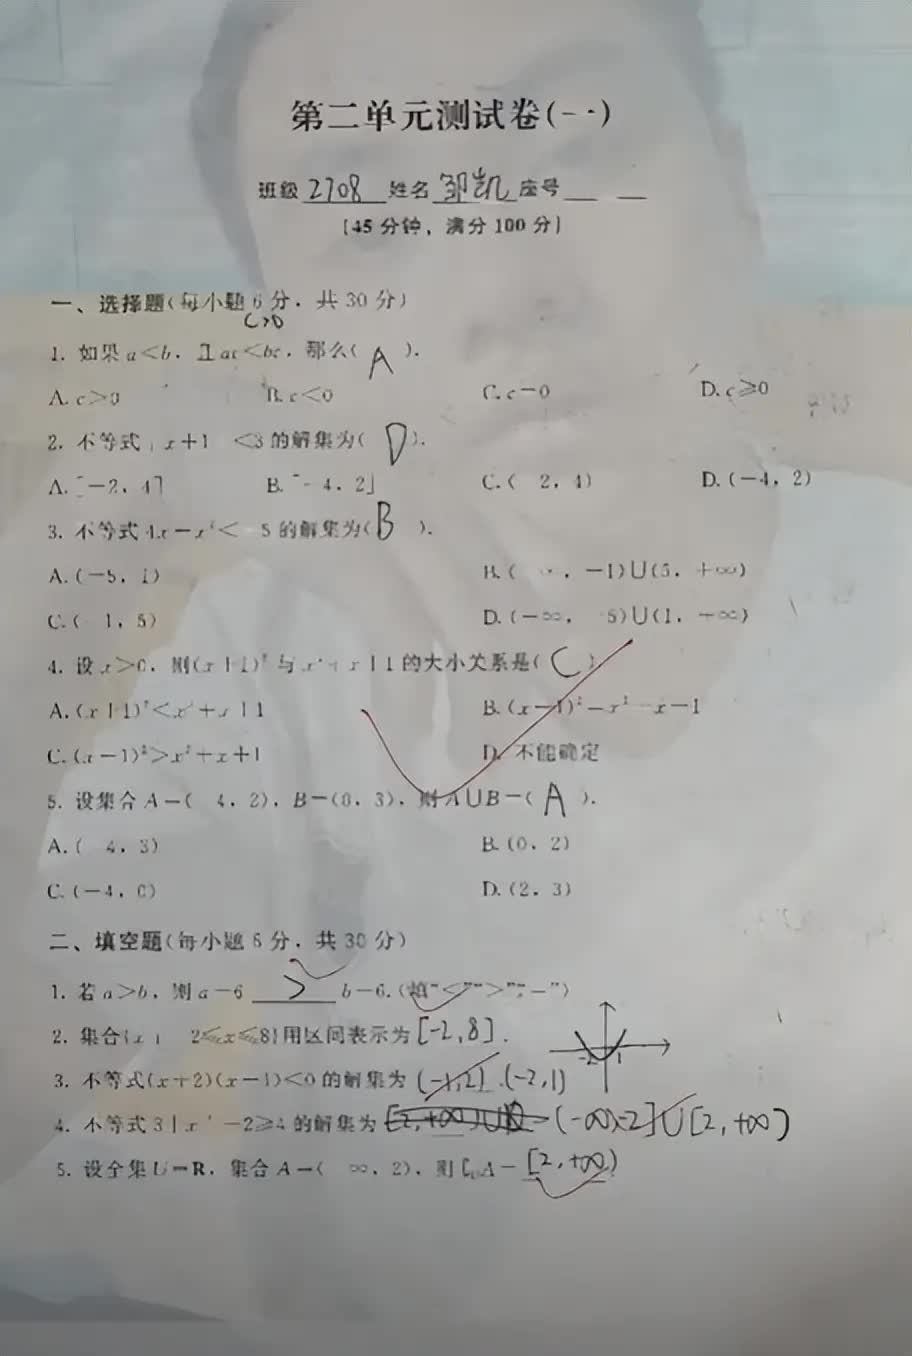 第二单元测试卷(一)
班级 2708 姓名 邹凯 座号
[45分钟,满分100分]
一、选择题(每小题6分,共30分)
c>0
1. 如果a<b,且ac<bc,那么( A ).
A. c>0 B. c<0 C. c=0 D. c≥0
2. 不等式|x+1|<3的解集为( D ).
A. [-2,4] B. [-4,2] C. (-2,4) D. (-4,2)
3. 不等式4x-x²<-5的解集为( B ).
A. (-5,1) B. (-∞,-1)∪(5,+∞)
C. (-1,5) D. (-∞,-5)∪(1,+∞)
4. 设x>0,则(x+1)²与x²+x+1的大小关系是( C )
A. (x+1)²<x²+x+1 B. (x+1)²=x²+x+1
C. (x+1)²>x²+x+1 D. 不能确定
5. 设集合A=(-4,2),B=(0,3),则A∪B=( A ).
A. (-4,3) B. (0,2)
C. (-4,0) D. (2,3)
二、填空题(每小题6分,共30分)
1. 若a>b,则a-6 > b-6.(填"<"">""=")
2. 集合{x|-2≤x≤8}用区间表示为 [-2,8].
3. 不等式(x+2)(x-1)<0的解集为 (-2,1)
-2 1
4. 不等式3|x|-2≥4的解集为 (-∞,-2]∪[2,+∞)
5. 设全集U=R,集合A=(-∞,2),则∁ᵤA= [2,+∞)